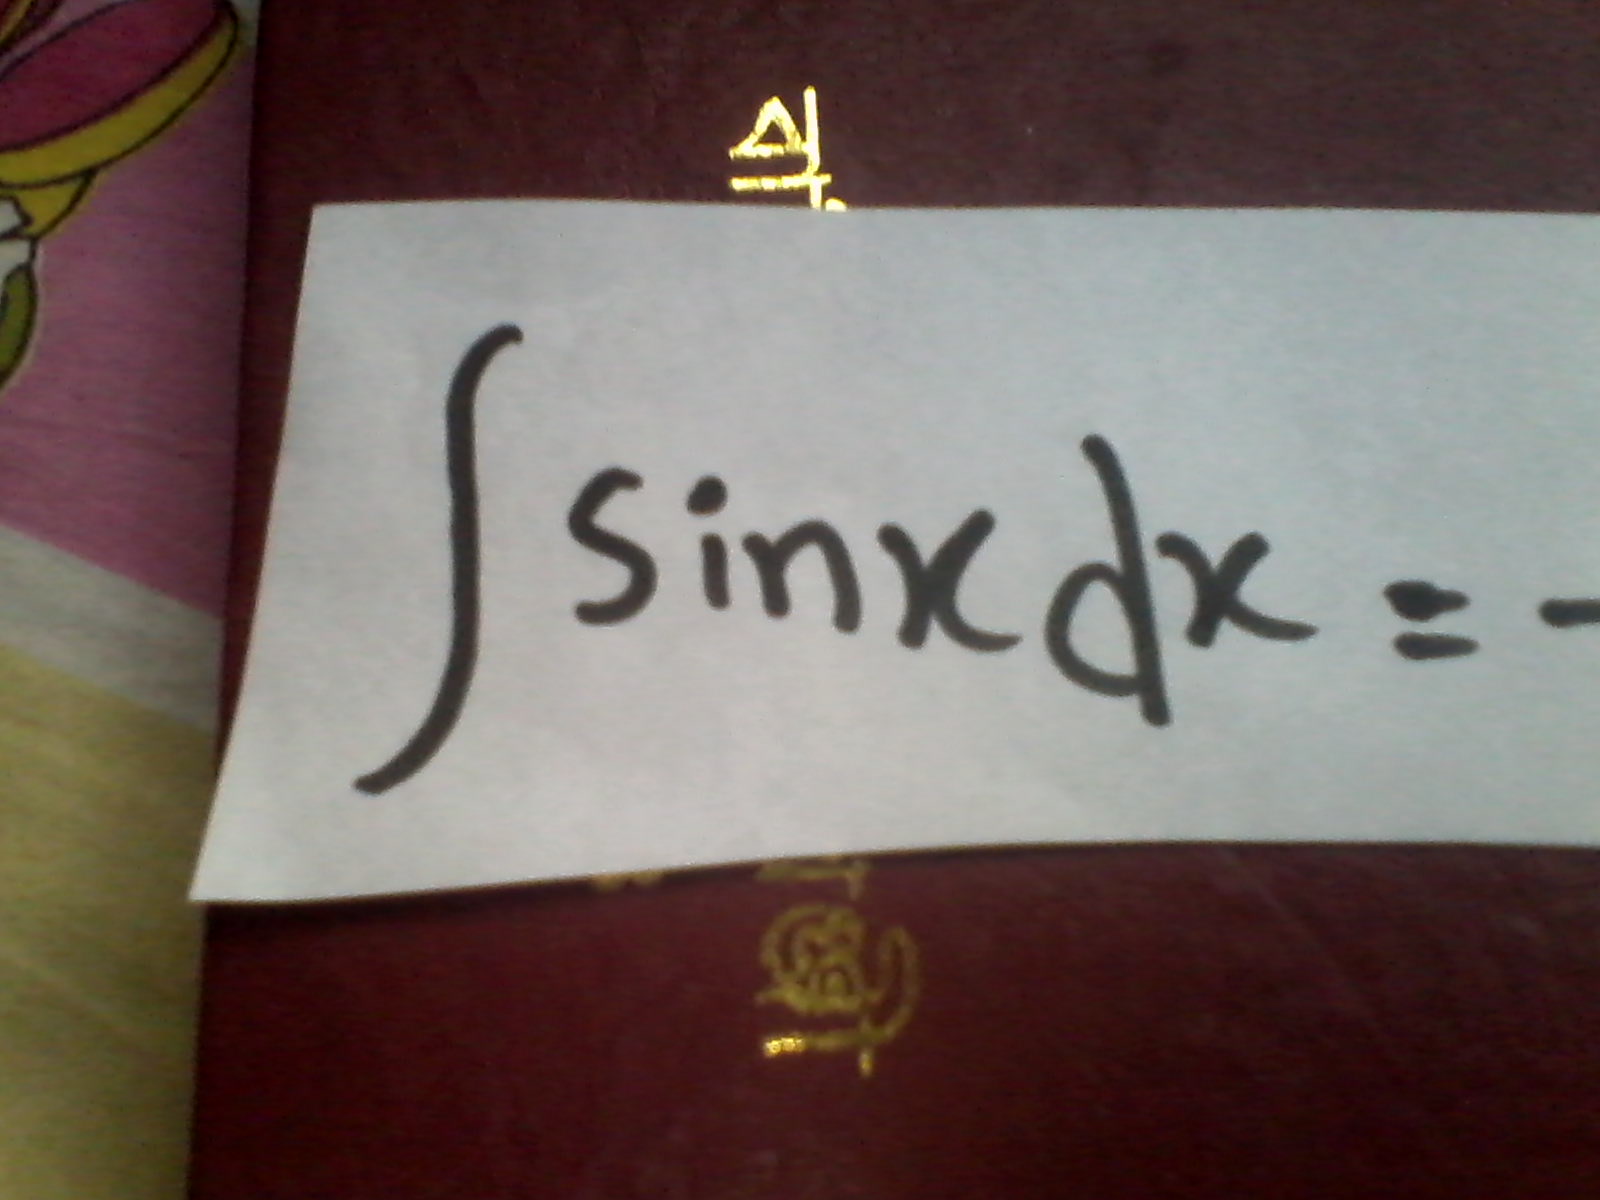 ∫ sinx dx = -